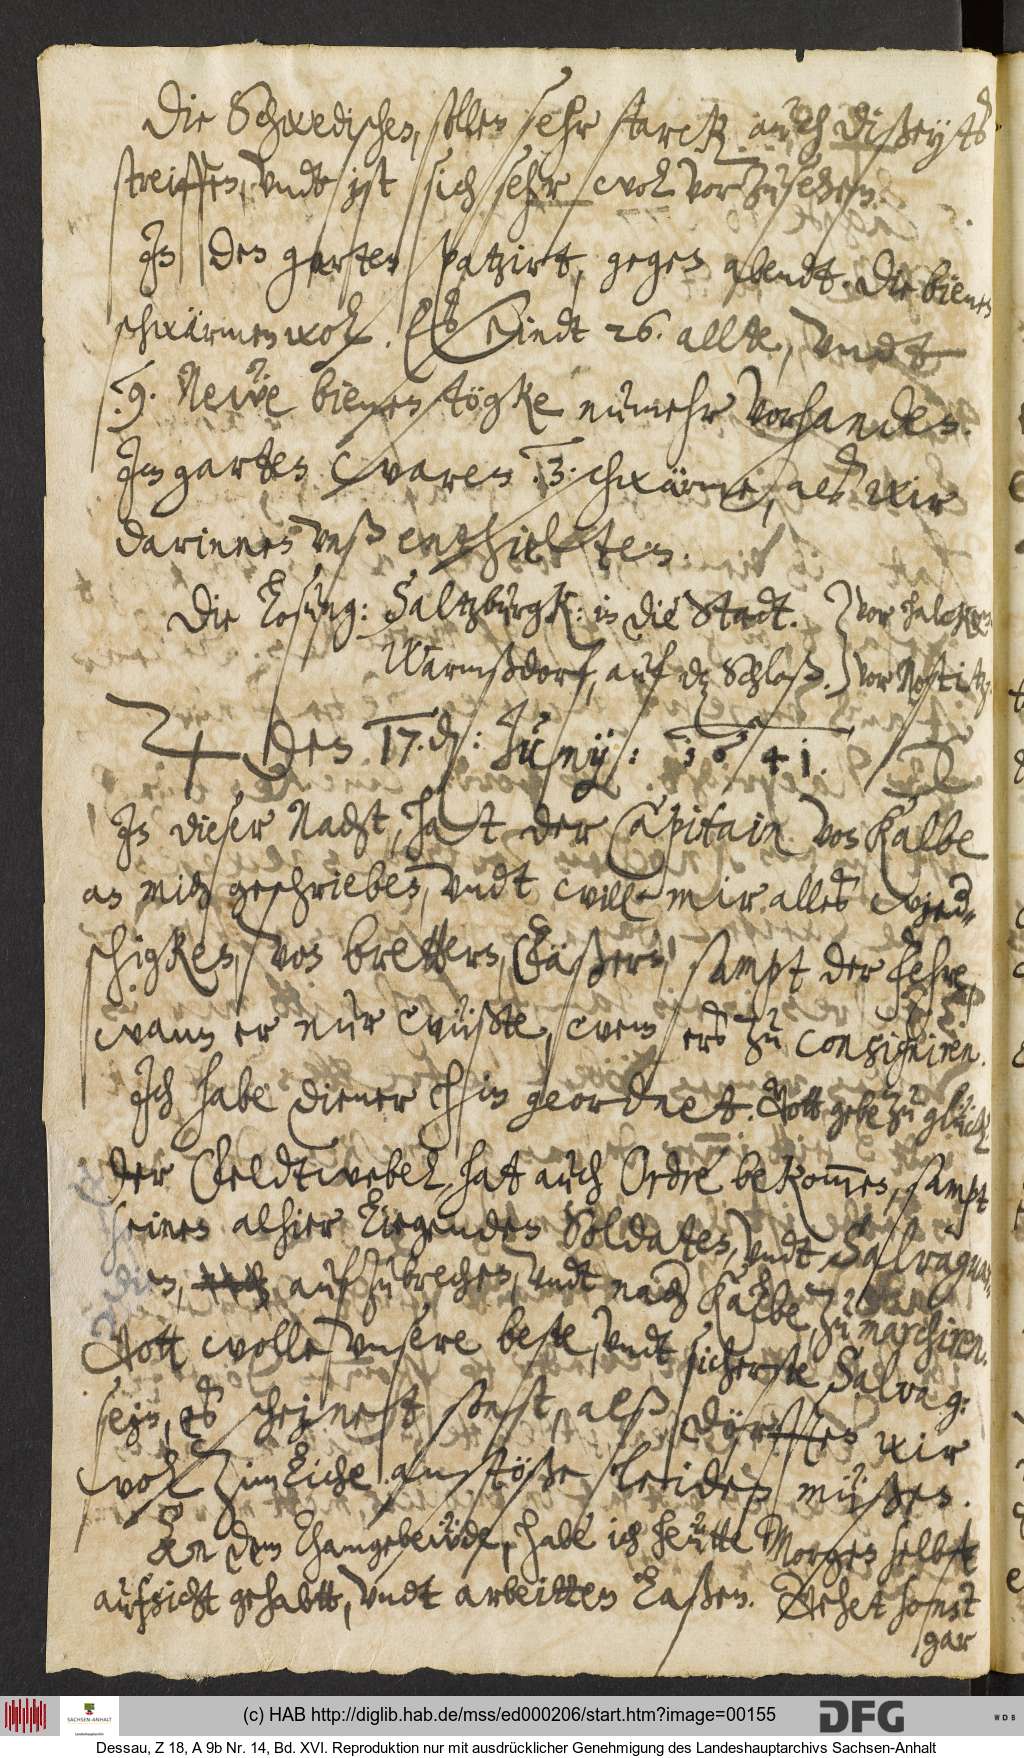 Die Schwedischen, sollen sehr starck auch dißeyts
streiffen, vndt ist sich sehr wol vorzusehen.
In den garten spatzirt, gegen abendt. Die bienen
schwärmen wol. Es seindt 26. allte, vndt
9. Neẅe bienenstögke numehr vorhanden.
Im garten waren 3: schwärme, alß wir
darinnen vnß enthielten.
Die Losung: Saltzburgk: in die Stadt. } vor
Warmßdorf, auf dz Schloß. } vor Rostitz
♃ den 17. d: Junÿ: 1641.
In dieser Nacht, hat der Capitain von Kalbe
an mich geschrieben, vndt will mir alles wied-
schigken, von brettern, Fäßern, sampt der Fehre,
wann er nur wüßte, wem ers zu consigniren.
Ich habe diener hin geordnet. Gott gebe zu glück
Der Feldtwebel hat auch Ordre bekom̅en, sampt
seinen alhier liegenden Soldaten, vndt Salvaguar-
dien, aufzubrechen, vndt nach Kalbe, zu marchiren.
Gott wolle vnsere beste, vndt sicherste Salva g:
sein, es scheinet sonst, alß dörfften wir
wol zimliche anstöße leiden müßen.
An dem Thamgebeẅde, habe ich heütte Morgen selbst
aufsicht gehabtt, vndt arbeitten laßen. Gehet sonst
gar
(c) HAB http://diglib.hab.de/mss/ed000206/start.htm?image=00155
SACHSEN-ANHALT
Landeshauptarchiv
DFG
WDB
Dessau, Z 18, A 9b Nr. 14, Bd. XVI. Reproduktion nur mit ausdrücklicher Genehmigung des Landeshauptarchivs Sachsen-Anhalt